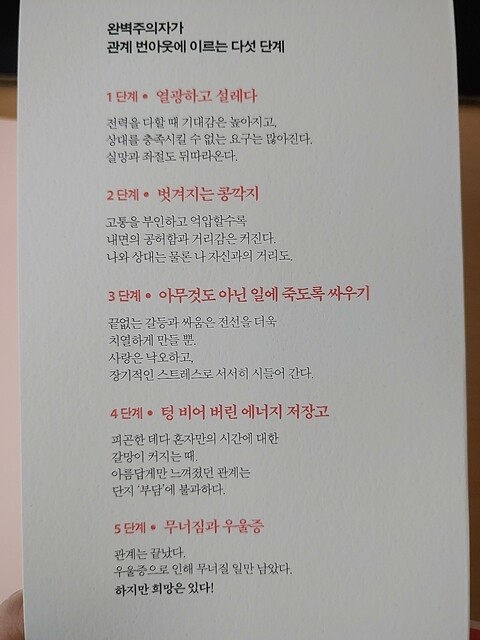 완벽주의자가
관계 번아웃에 이르는 다섯 단계
1 단계 • 열광하고 설레다
전력을 다할 때 기대감은 높아지고,
상대를 충족시킬 수 없는 요구는 많아진다.
실망과 좌절도 뒤따라온다.
2 단계 • 벗겨지는 콩깍지
고통을 부인하고 억압할수록
내면의 공허함과 거리감은 커진다.
나와 상대는 물론 나 자신과의 거리도.
3 단계 • 아무것도 아닌 일에 죽도록 싸우기
끝없는 갈등과 싸움은 전선을 더욱
치열하게 만들 뿐.
사랑은 낙오하고,
장기적인 스트레스로 서서히 시들어 간다.
4 단계 • 텅 비어 버린 에너지 저장고
피곤한 데다 혼자만의 시간에 대한
갈망이 커지는 때.
아름답게만 느껴졌던 관계는
단지 '부담'에 불과하다.
5 단계 • 무너짐과 우울증
관계는 끝났다.
우울증으로 인해 무너질 일만 남았다.
하지만 희망은 있다!